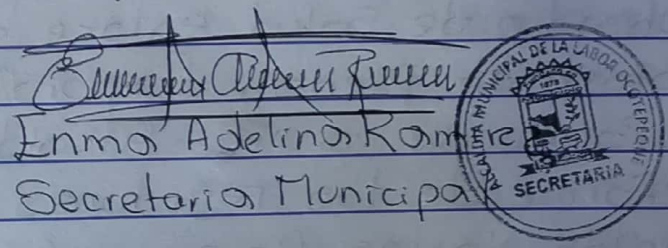 Enma Adelina Ramirez
Secretaria Municipal
ALCALDIA MUNICIPAL DE LA LABOR OCOTEPEQUE
1878
SECRETARIA